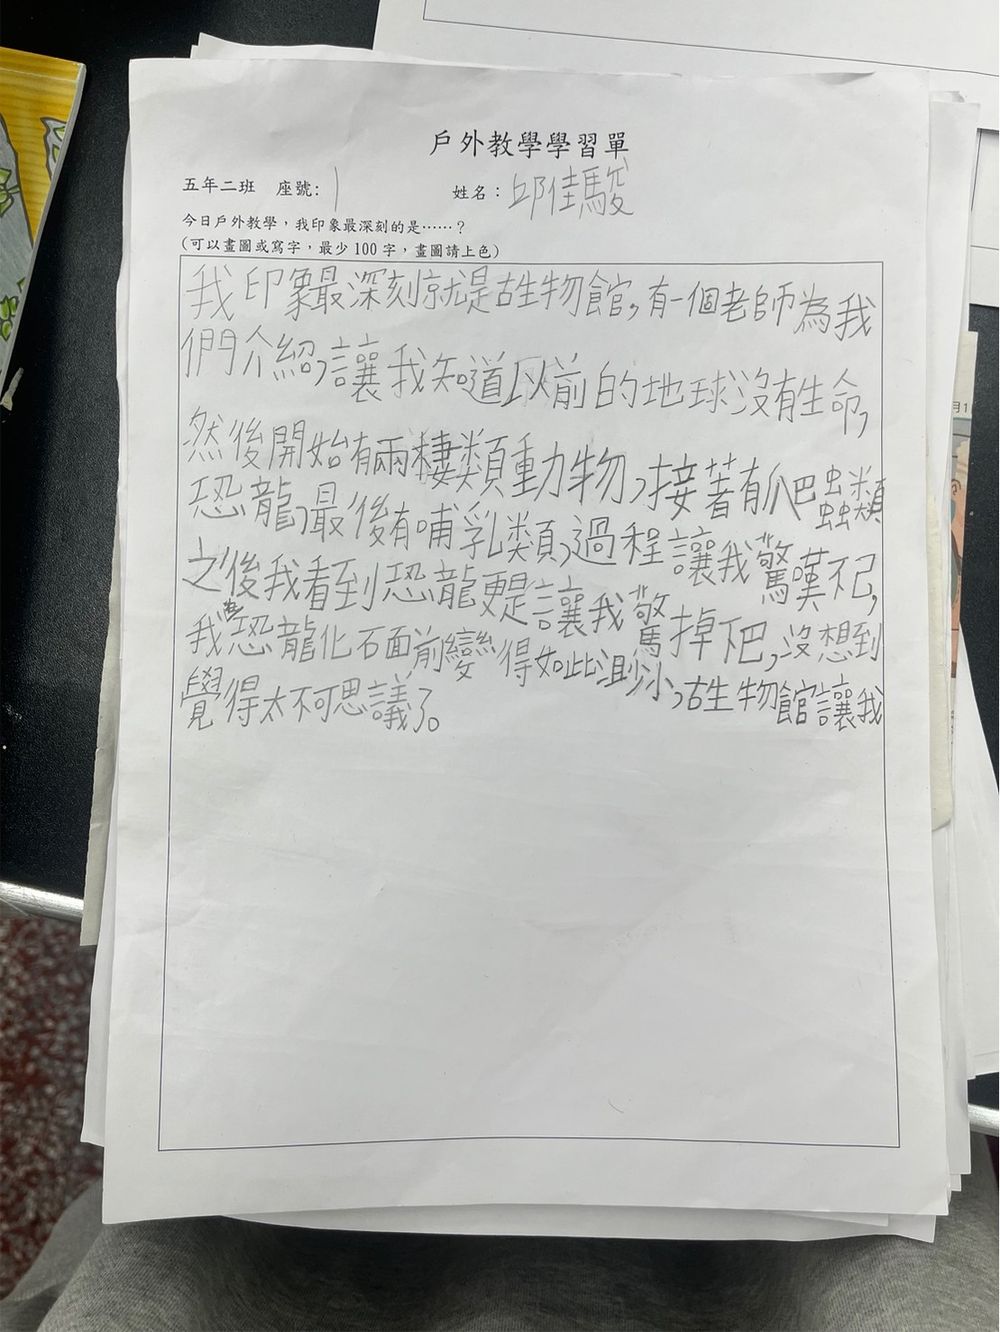 戶外教學學習單
五年二班 座號: 1 姓名：邱佳駿
今日戶外教學，我印象最深刻的是……？
（可以畫圖或寫字，最少 100 字，畫圖請上色）
我印象最深刻就是古生物館，有一個老師為我
們介紹，讓我知道以前的地球沒有生命，
然後開始有兩棲類動物，接著有爬蟲類
恐龍，最後有哺乳類，過程讓我驚嘆不已，
之後我看到恐龍更是讓我驚掉下巴，沒想到
我在恐龍化石面前變得如此渺小，古生物館讓我
覺得太不可思議了。
月1